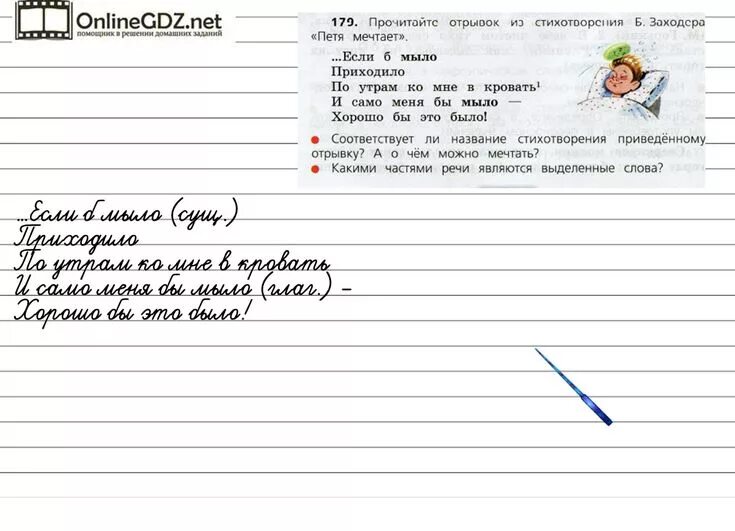 OnlineGDZ.net
помощник в решении домашних заданий
179. Прочитайте отрывок из стихотворения Б. Заходера
«Петя мечтает».
...Если б мыло
Приходило
По утрам ко мне в кровать¹
И само меня бы мыло —
Хорошо бы это было!
Соответствует ли название стихотворения приведённому
отрывку? А о чём можно мечтать?
Какими частями речи являются выделенные слова?
...Если б мыло (сущ.)
Приходило
По утрам ко мне в кровать
И само меня бы мыло (глаг.) –
Хорошо бы это было!